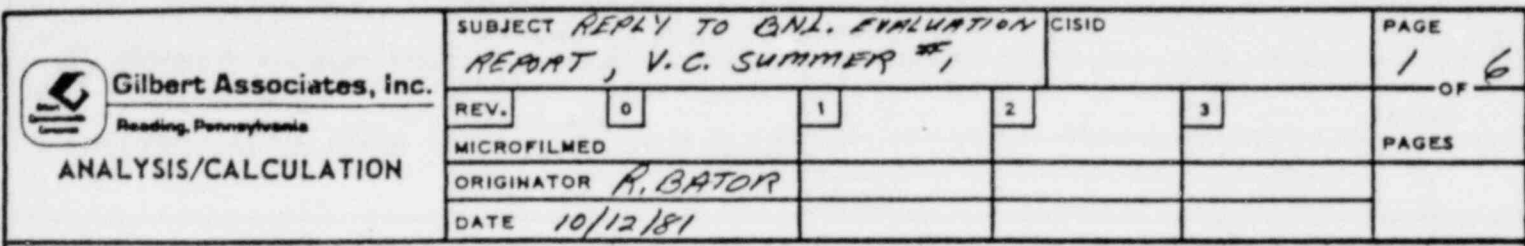 Gilbert Associates, Inc.
Reading, Pennsylvania
ANALYSIS/CALCULATION
SUBJECT REPLY TO BNL. EVALUATION
REPORT, V.C. SUMMER #1
CISID
PAGE
1 OF 6
PAGES
REV. 0 1 2 3
MICROFILMED
ORIGINATOR R. BATOR
DATE 10/12/81